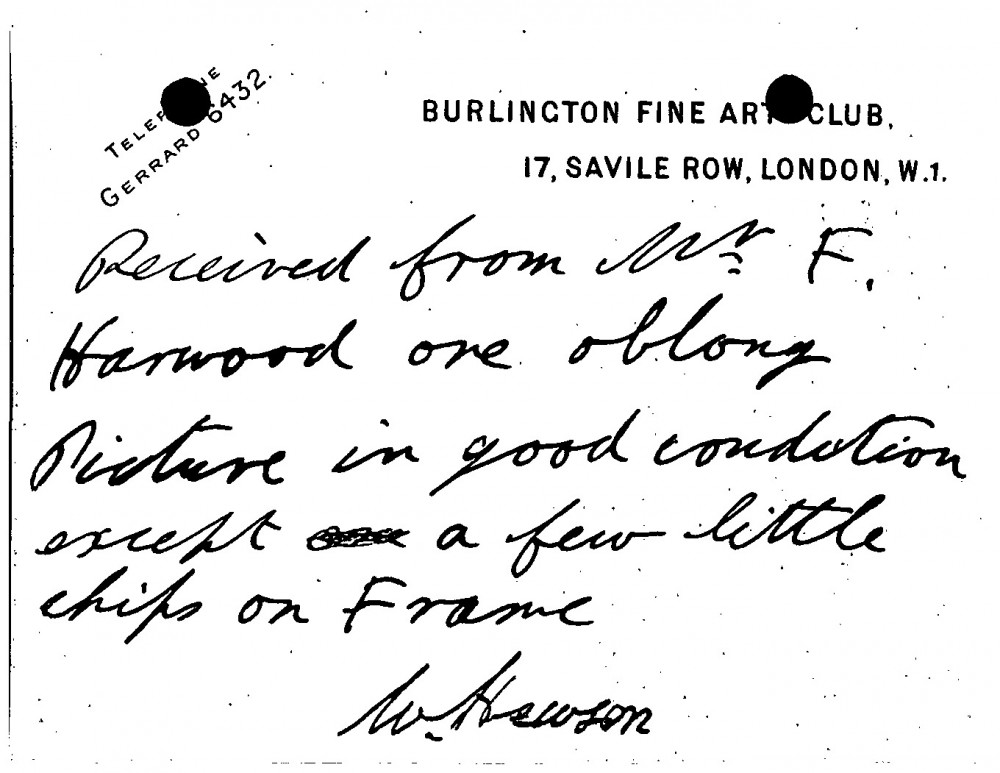 TELEPHONE
GERRARD 6432.
BURLINGTON FINE ARTS CLUB,
17, SAVILE ROW, LONDON, W.1.
Received from Mr. F.
Harwood one oblong
Picture in good condition
except a few little
chips on Frame
W. Hewson